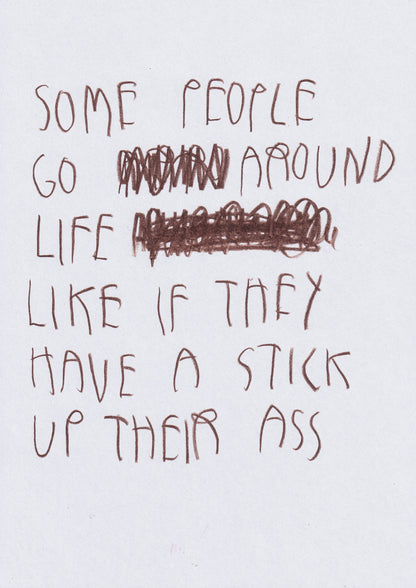 SOME PEOPLE
GO AROUND
LIFE
LIKE IF THEY
HAVE A STICK
UP THEIR ASS